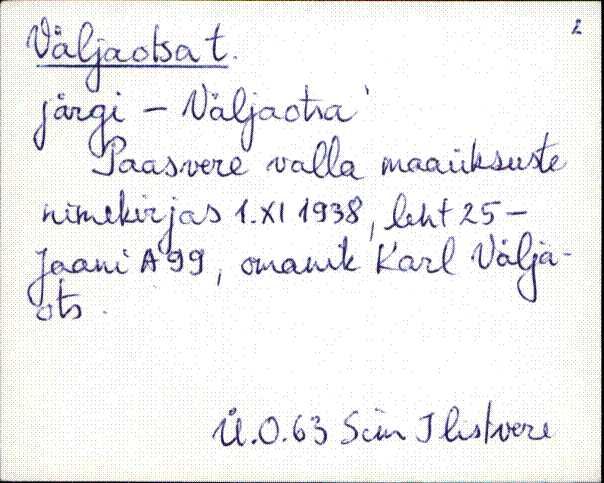 2
Väljaotsa t.
järgi – Väljaotsa'
Paasvere valla maaüksuste
nimekirjas 1.XI 1938, leht 25 –
Jaani A99, omanik Karl Välja-
ots.
Ü.O.63 Sim Ilistvere